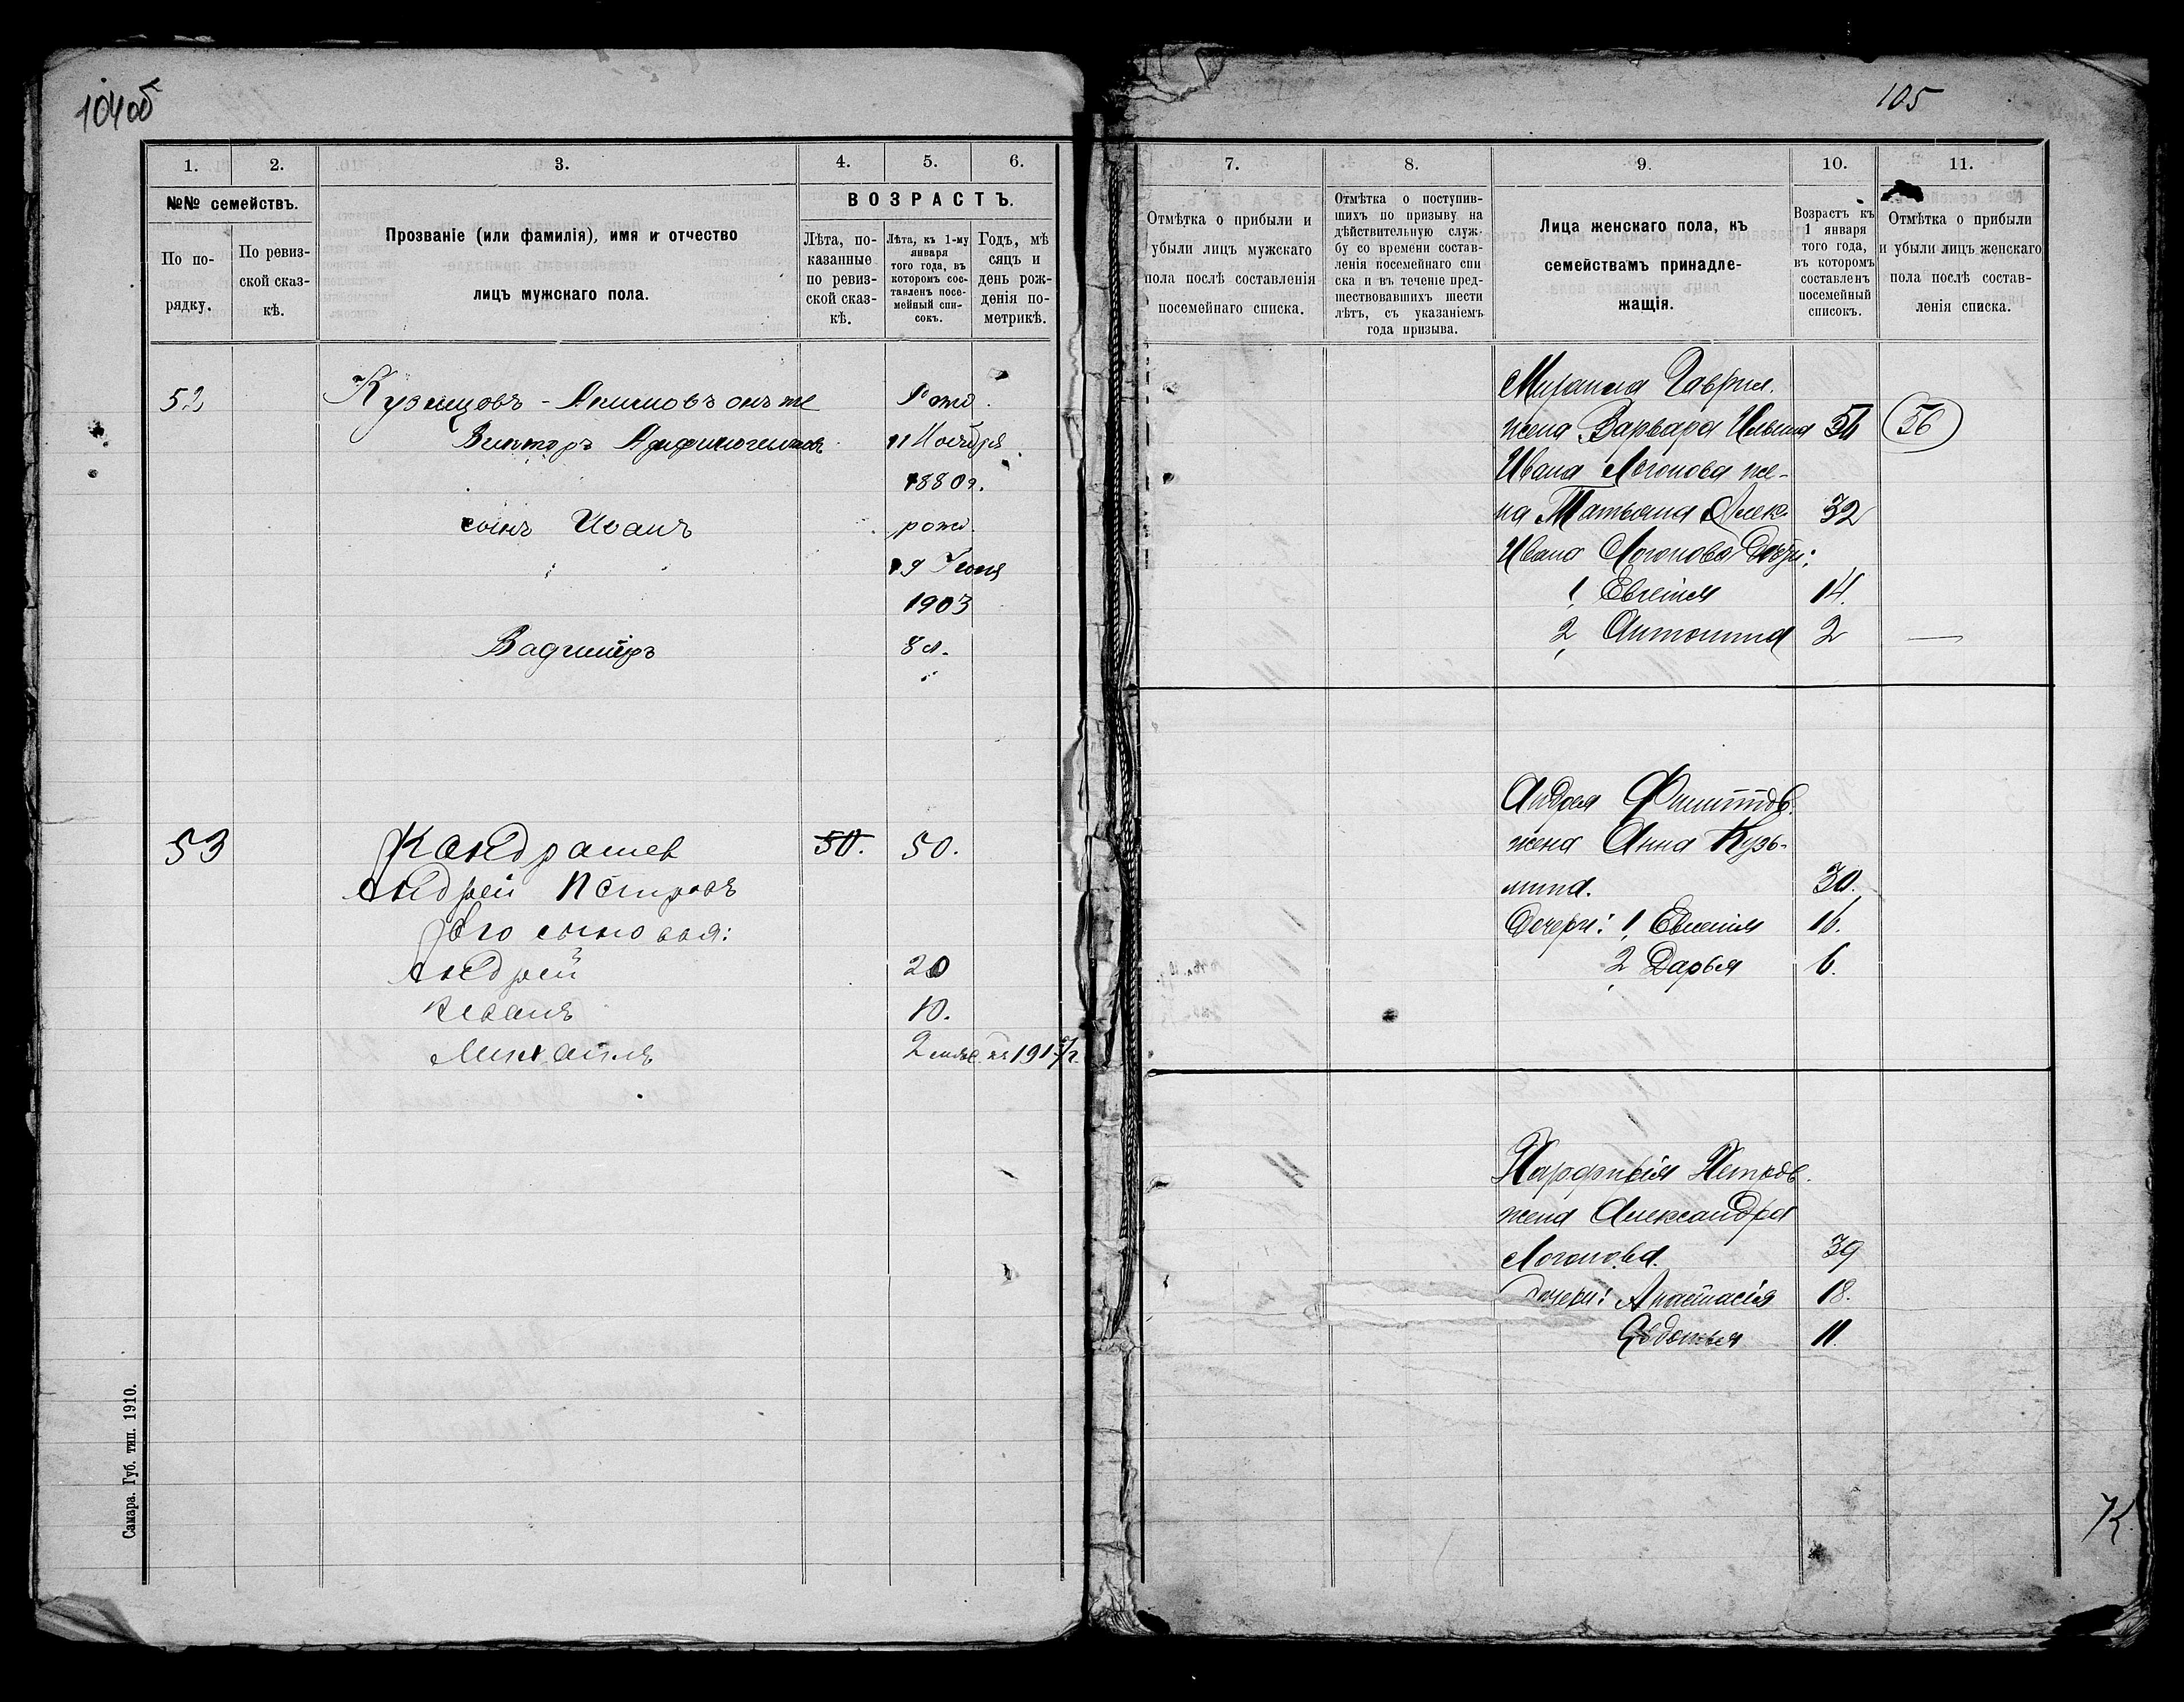 104об
1. 2. 3. 4. 5. 6.
№№ семействъ.
По по-
рядку.
По ревиз-
ской сказ-
кѣ.
Прозваніе (или фамилія), имя и отчество
лицъ мужскаго пола.
ВОЗРАСТЪ.
Лѣта, по-
казанные
по ревиз-
ской сказ-
кѣ.
Лѣта, къ 1-му
января
того года, въ
которомъ сос-
тавленъ посе-
мейный спи-
сокъ.
Годъ, мѣ
сяцъ и
день рож-
денія по-
метрикѣ.
52 Кузнецовъ - Акимовъ онъ же Рожд.
Викторъ 11 Ноября
1880 г.
сынъ Иванъ рожд.
19 Іюня
1903
8 л.
53 Кондрашев 50. 50.
Андрей Петровъ
Его сыновья:
Андрей 20
Иванъ 10.
Михаилъ 2 1917 г.
Самара. Губ. тип. 1910.
105
7. 8. 9. 10. 11.
Отмѣтка о прибыли и
убыли лицъ мужскаго
пола послѣ составленія
посемейнаго списка.
Отмѣтка о поступив-
шихъ по призыву на
дѣйствительную служ-
бу со времени состав-
ленія посемейнаго спи
ска и въ теченіе пред-
шествовавшихъ шести
лѣтъ, съ указаніемъ
года призыва.
Лица женскаго пола, къ
семействамъ принадле-
жащія.
Возрастъ къ
1 января
того года,
въ которомъ
составленъ
посемейный
списокъ.
Отмѣтка о прибыли
и убыли лицъ женскаго
пола послѣ состав-
ленія списка.
Михаила Гаврил.
жена Варвара Ильина 54 56
Ивана Логинова же-
на Татьяна Алек. 32
Ивана Логинова дочери:
1, Евгенія 14.
2, Антонина 2 —
Андрея Филиппов.
жена Анна Кузь-
мина. 30.
Дочери: 1, Евгенія 16.
2, Дарья 6.
Парфенія Петров.
жена Александра
Логинова. 39
Дочери: Анастасія 18.
Евдотья 11.